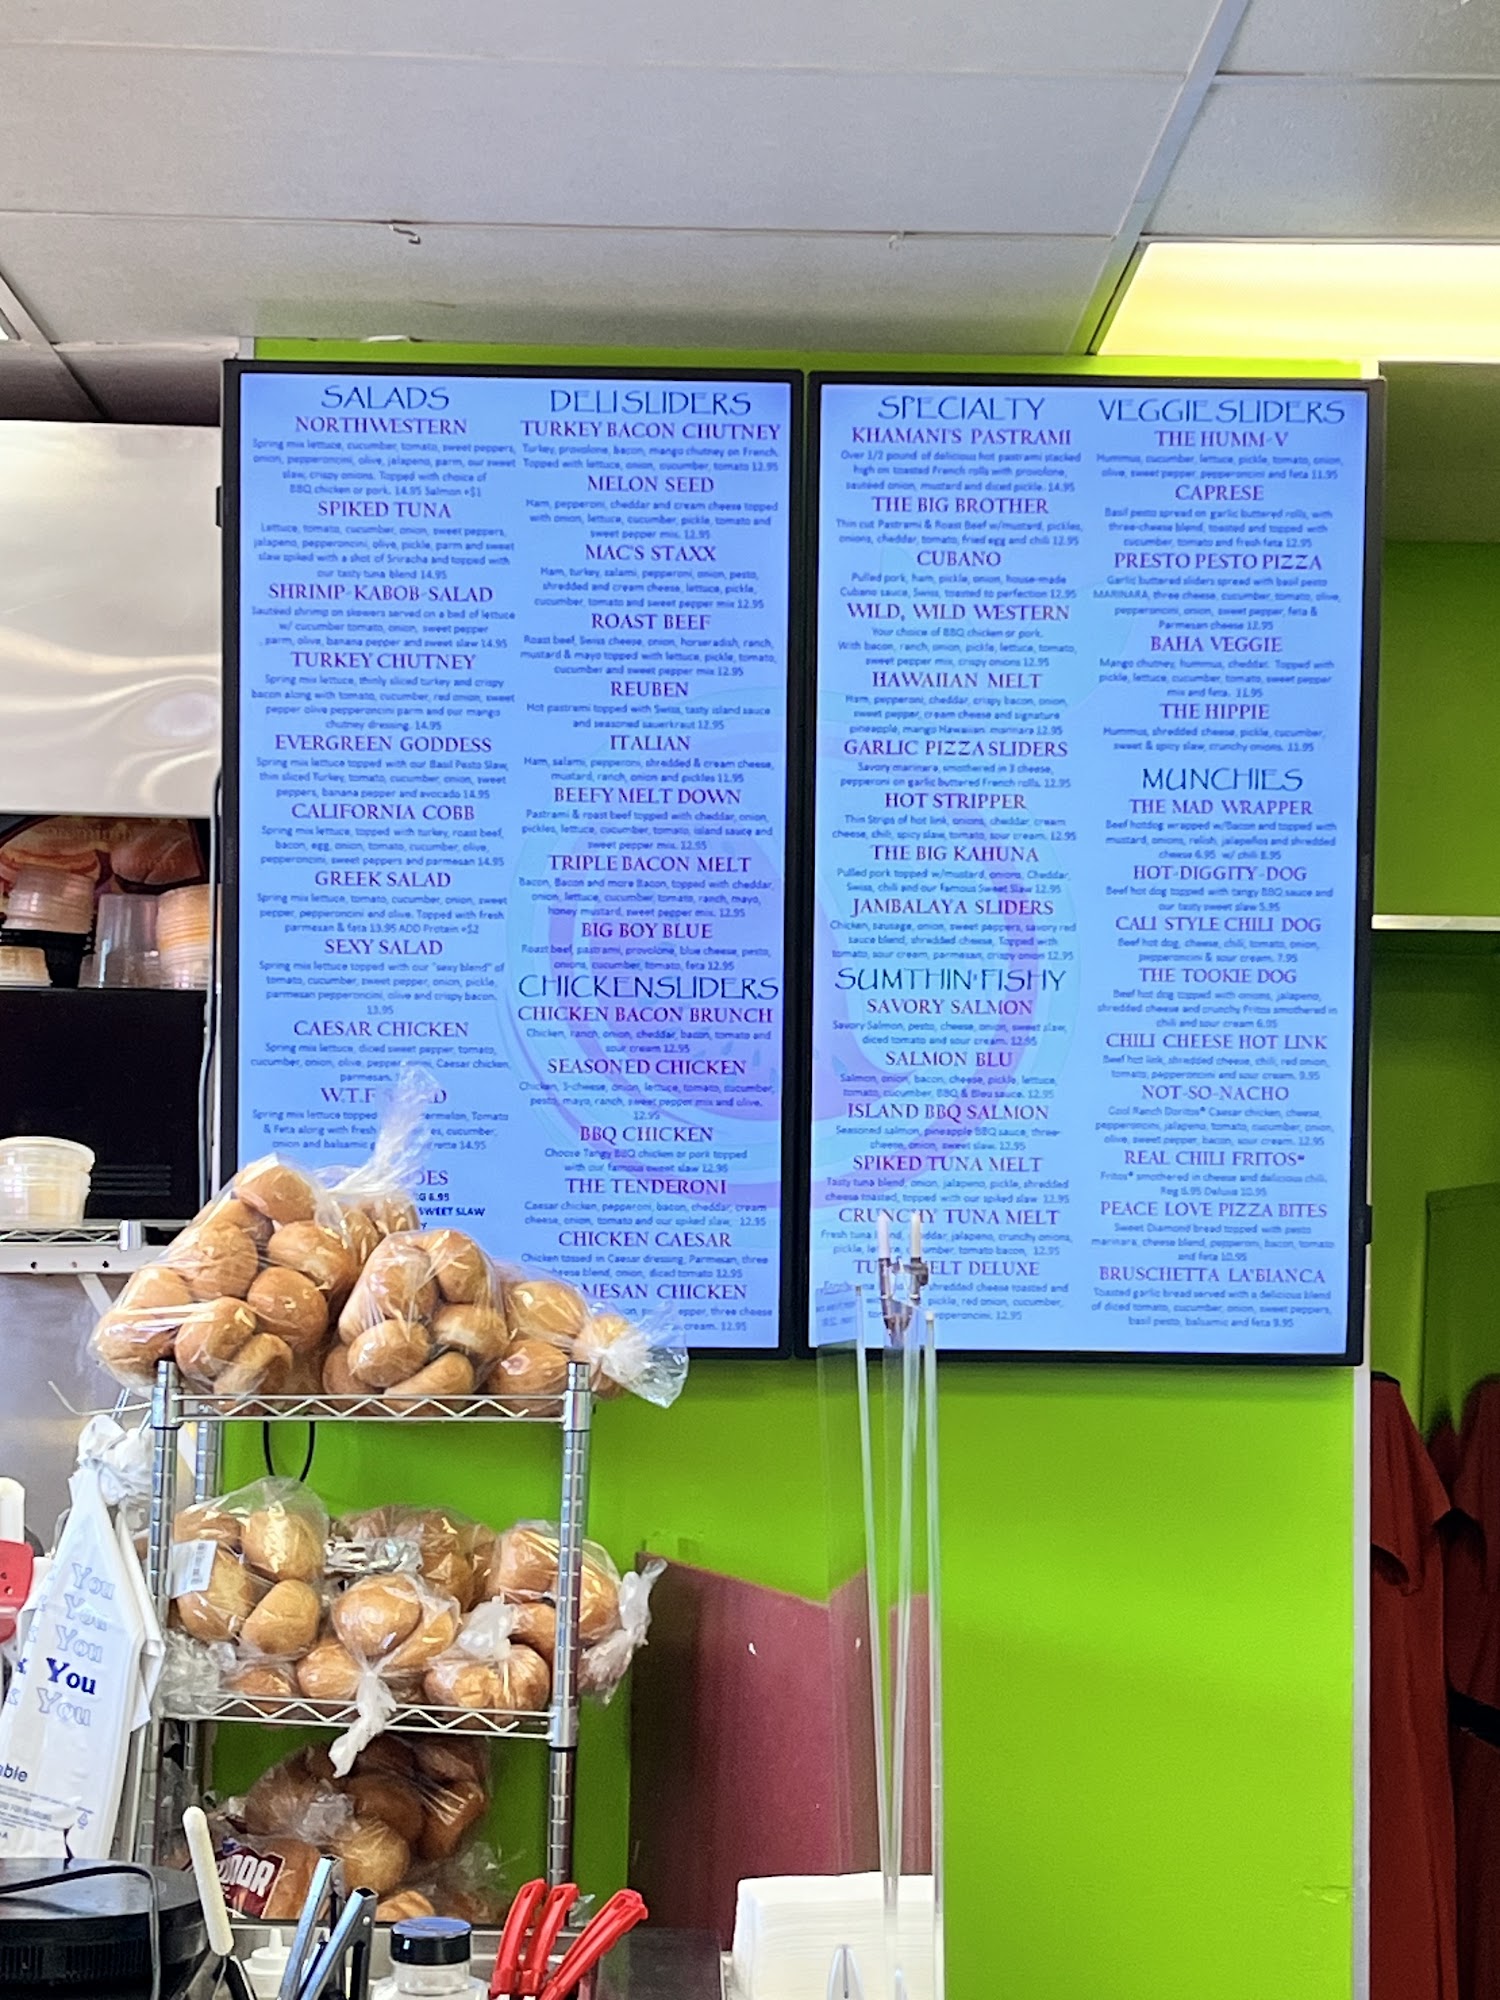 SALADS
NORTHWESTERN
Spring mix lettuce, cucumber, tomato, sweet peppers,
onion, pepperoncini, olive, jalapeno, parm, our sweet
slaw, crispy onions. Topped with choice of
BBQ chicken or pork. 14.95 Salmon +$1
SPIKED TUNA
Lettuce, tomato, cucumber, onion, sweet peppers,
jalapeno, pepperoncini, olive, pickle, parm and sweet
slaw spiked with a shot of Sriracha and topped with
our tasty tuna blend 14.95
SHRIMP-KABOB-SALAD
Sautéed shrimp on skewers served on a bed of lettuce
w/ cucumber tomato, onion, sweet pepper
, parm, olive, banana pepper and sweet slaw 14.95
TURKEY CHUTNEY
Spring mix lettuce, thinly sliced turkey and crispy
bacon along with tomato, cucumber, red onion, sweet
pepper olive pepperoncini parm and our mango
chutney dressing. 14.95
EVERGREEN GODDESS
Spring mix lettuce topped with our Basil Pesto Slaw,
thin sliced Turkey, tomato, cucumber, onion, sweet
peppers, banana pepper and avocado 14.95
CALIFORNIA COBB
Spring mix lettuce, topped with turkey, roast beef,
bacon, egg, onion, tomato, cucumber, olive,
pepperoncini, sweet peppers and parmesan 14.95
GREEK SALAD
Spring mix lettuce, tomato, cucumber, onion, sweet
pepper, pepperoncini and olive. Topped with fresh
parmesan & feta 13.95 ADD Protein +$2
SEXY SALAD
Spring mix lettuce topped with our "sexy blend" of
tomato, cucumber, sweet pepper, onion, pickle,
parmesan pepperoncini, olive and crispy bacon.
13.95
CAESAR CHICKEN
Spring mix lettuce, diced sweet pepper, tomato,
cucumber, onion, olive, pepperoncini, Caesar chicken,
parmesan.
W.T.F SALAD
Spring mix lettuce topped Tomato
& Feta along with fresh cucumber,
onion and balsamic 14.95
6.95
SWEET SLAW
DELI SLIDERS
TURKEY BACON CHUTNEY
Turkey, provolone, bacon, mango chutney on French.
Topped with lettuce, onion, cucumber, tomato 12.95
MELON SEED
Ham, pepperoni, cheddar and cream cheese topped
with onion, lettuce, cucumber, pickle, tomato and
sweet pepper mix. 12.95
MAC'S STAXX
Ham, turkey, salami, pepperoni, onion, pesto,
shredded and cream cheese, lettuce, pickle,
cucumber, tomato and sweet pepper mix 12.95
ROAST BEEF
Roast beef, Swiss cheese, onion, horseradish, ranch,
mustard & mayo topped with lettuce, pickle, tomato,
cucumber and sweet pepper mix 12.95
REUBEN
Hot pastrami topped with Swiss, tasty island sauce
and seasoned sauerkraut 12.95
ITALIAN
Ham, salami, pepperoni, shredded & cream cheese,
mustard, ranch, onion and pickles 11.95
BEEFY MELT DOWN
Pastrami & roast beef topped with cheddar, onion,
pickles, lettuce, cucumber, tomato, island sauce and
sweet pepper mix. 12.95
TRIPLE BACON MELT
Bacon, Bacon and more Bacon, topped with cheddar,
onion, lettuce, cucumber, tomato, ranch, mayo,
honey mustard, sweet pepper mix. 12.95
BIG BOY BLUE
Roast beef, pastrami, provolone, blue cheese, pesto,
onions, cucumber, tomato, feta 12.95
CHICKEN SLIDERS
CHICKEN BACON BRUNCH
Chicken, ranch, onion, cheddar, bacon, tomato and
sour cream 12.95
SEASONED CHICKEN
Chicken, 3-cheese, onion, lettuce, tomato, cucumber,
pesto, mayo, ranch, sweet pepper mix and olive.
12.95
BBQ CHICKEN
Choose Tangy BBQ chicken or pork topped
with our famous sweet slaw 12.95
THE TENDERONI
Caesar chicken, pepperoni, bacon, cheddar, cream
cheese, onion, tomato and our spiked slaw, 12.95
CHICKEN CAESAR
Chicken tossed in Caesar dressing, Parmesan, three
cheese blend, onion, diced tomato 12.95
CHICKEN
three cheese
cream. 12.95
SPECIALTY
KHAMANI'S PASTRAMI
Over 1/2 pound of delicious hot pastrami stacked
high on toasted French rolls with provolone,
sautéed onion, mustard and diced pickle. 14.95
THE BIG BROTHER
Thin cut Pastrami & Roast Beef w/mustard, pickles,
onions, cheddar, tomato, fried egg and chili 12.95
CUBANO
Pulled pork, ham, pickle, onion, house-made
Cubano sauce, Swiss, toasted to perfection 12.95
WILD, WILD WESTERN
Your choice of BBQ chicken or pork.
With bacon, ranch, onion, pickle, lettuce, tomato,
sweet pepper mix, crispy onions 12.95
HAWAIIAN MELT
Ham, pepperoni, cheddar, crispy bacon, onion,
sweet pepper, cream cheese and signature
pineapple, mango Hawaiian marinara 12.95
GARLIC PIZZA SLIDERS
Savory marinara, smothered in 3 cheese,
pepperoni on garlic buttered French rolls. 12.95
HOT STRIPPER
Thin Strips of hot link, onions, cheddar, cream
cheese, chili, spicy slaw, tomato, sour cream. 12.95
THE BIG KAHUNA
Pulled pork topped w/mustard, onions, Cheddar,
Swiss, chili and our famous Sweet Slaw 12.95
JAMBALAYA SLIDERS
Chicken, sausage, onion, sweet peppers, savory red
sauce blend, shredded cheese, Topped with
tomato, sour cream, parmesan, crispy onion 12.95
SUMTHIN' FISHY
SAVORY SALMON
Savory Salmon, pesto, cheese, onion, sweet slaw,
diced tomato and sour cream. 12.95
SALMON BLU
Salmon, onion, bacon, cheese, pickle, lettuce,
tomato, cucumber, BBQ & Bleu sauce. 12.95
ISLAND BBQ SALMON
Seasoned salmon, pineapple BBQ sauce, three-
cheese, onion, sweet slaw. 12.95
SPIKED TUNA MELT
Tasty tuna blend, onion, jalapeno, pickle, shredded
cheese toasted, topped with our spiked slaw 12.95
CRUNCHY TUNA MELT
Fresh tuna blend, cheddar, jalapeno, crunchy onions,
pickle, lettuce, cucumber, tomato bacon, 12.95
MELT DELUXE
shredded cheese toasted and
pickle, red onion, cucumber,
pepperoncini. 12.95
VEGGIE SLIDERS
THE HUMM-V
Hummus, cucumber, lettuce, pickle, tomato, onion,
olive, sweet pepper, pepperoncini and feta 11.95
CAPRESE
Basil pesto spread on garlic buttered rolls, with
three-cheese blend, toasted and topped with
cucumber, tomato and fresh feta 12.95
PRESTO PESTO PIZZA
Garlic buttered sliders spread with basil pesto
MARINARA, three cheese, cucumber, tomato, olive,
pepperoncini, onion, sweet pepper, feta &
Parmesan cheese 12.95
BAHA VEGGIE
Mango chutney, hummus, cheddar. Topped with
pickle, lettuce, cucumber, tomato, sweet pepper
mix and feta. 11.95
THE HIPPIE
Hummus, shredded cheese, pickle, cucumber,
sweet & spicy slaw, crunchy onions. 11.95
MUNCHIES
THE MAD WRAPPER
Beef hotdog wrapped w/Bacon and topped with
mustard, onions, relish, jalapeños and shredded
cheese 6.95 w/ chili 8.95
HOT-DIGGITY-DOG
Beef hot dog topped with tangy BBQ sauce and
our tasty sweet slaw 5.95
CALI STYLE CHILI DOG
Beef hot dog, cheese, chili, tomato, onion,
pepperoncini & sour cream. 7.95
THE TOOKIE DOG
Beef hot dog topped with onions, jalapeno,
shredded cheese and crunchy Fritos smothered in
chili and sour cream 6.95
CHILI CHEESE HOT LINK
Beef hot link, shredded cheese, chili, red onion,
tomato, pepperoncini and sour cream. 9.95
NOT-SO-NACHO
Cool Ranch Doritos® Caesar chicken, cheese,
pepperoncini, jalapeno, tomato, cucumber, onion,
olive, sweet pepper, bacon, sour cream. 12.95
REAL CHILI FRITOS®
Fritos® smothered in cheese and delicious chili,
Reg 6.95 Deluxe 10.95
PEACE LOVE PIZZA BITES
Sweet Diamond bread topped with pesto
marinara, cheese blend, pepperoni, bacon, tomato
and feta 10.95
BRUSCHETTA LA'BIANCA
Toasted garlic bread served with a delicious blend
of diced tomato, cucumber, onion, sweet peppers,
basil pesto, balsamic and feta 9.95
You
You
You
You
You